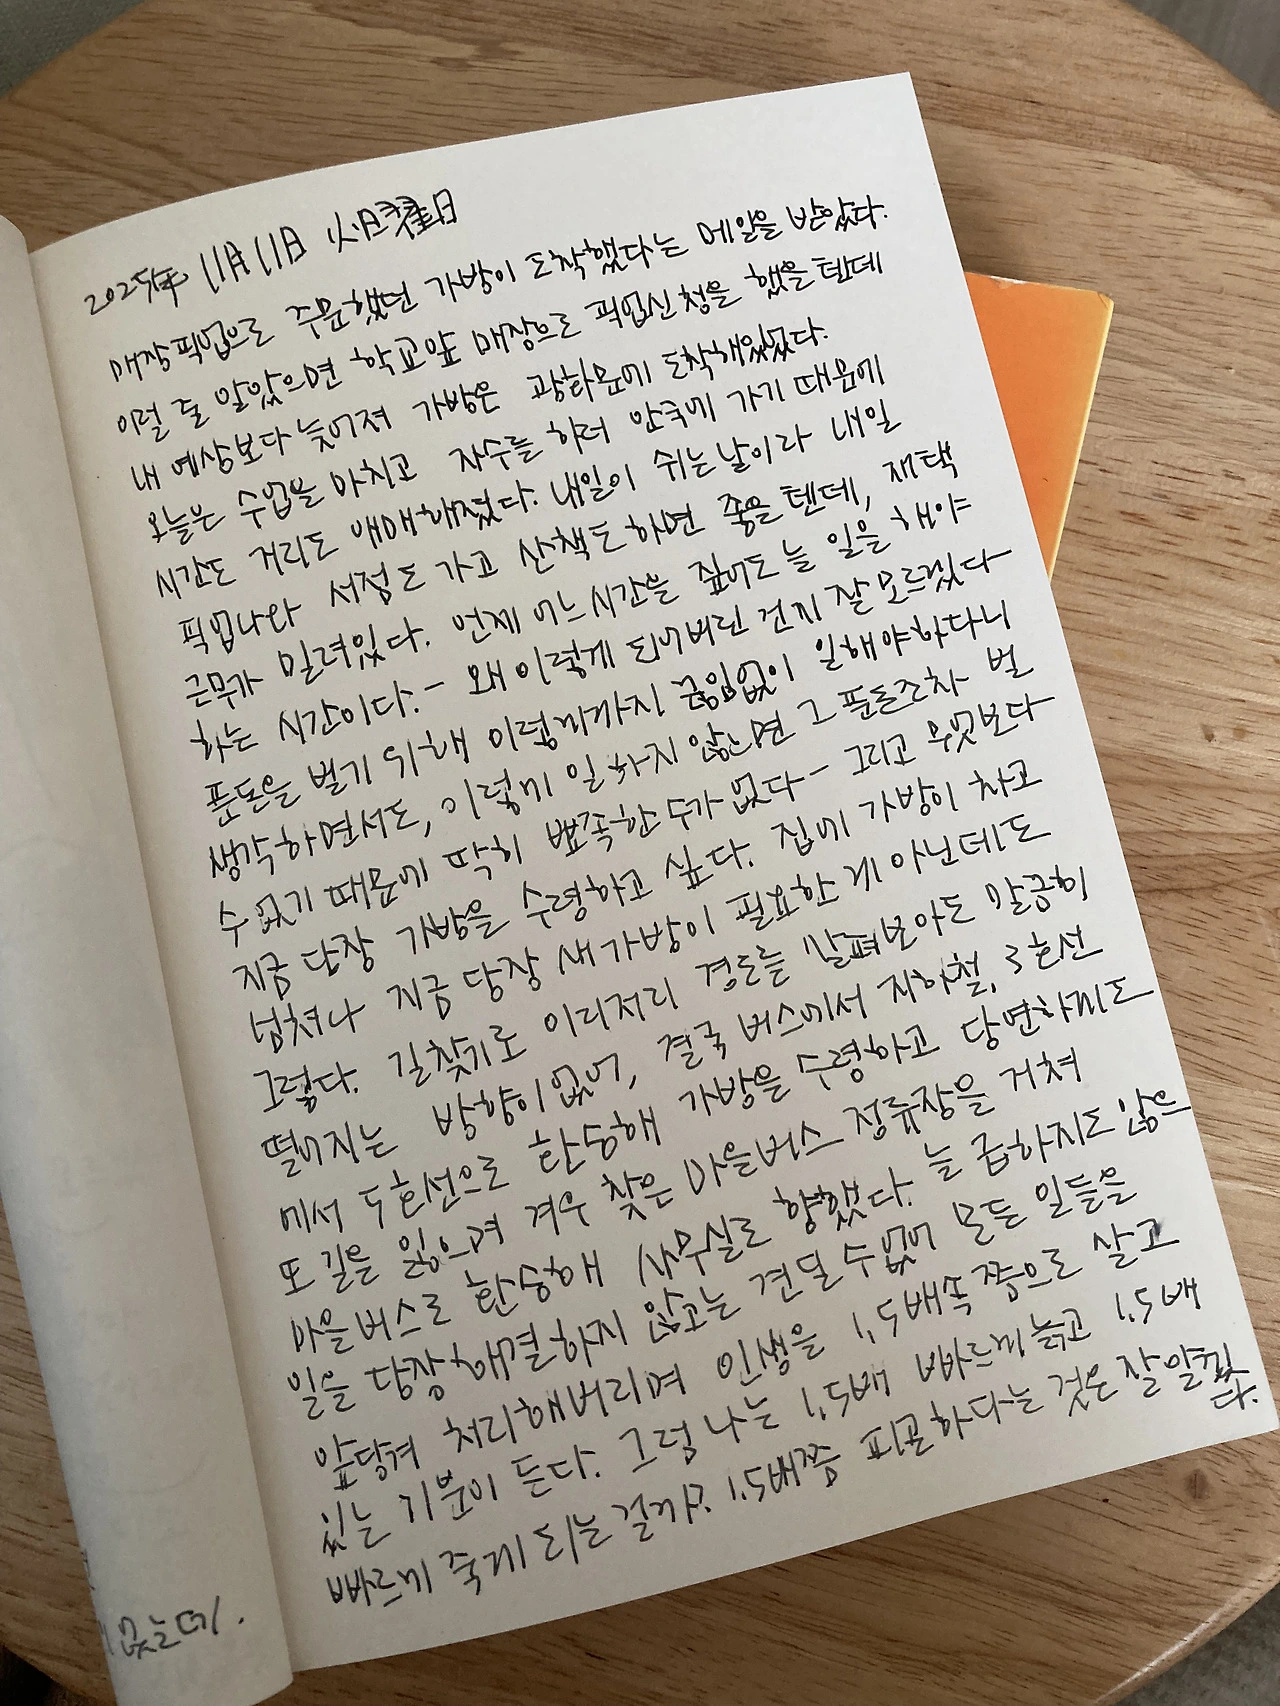 2025年 11月 11日 火曜日
매장픽업으로 주문했던 가방이 도착했다는 메일을 받았다.
이럴 줄 알았으면 학교앞 매장으로 픽업신청을 했을텐데
내 예상보다 늦어져 가방은 광화문에 도착해있었다.
오늘은 수업을 마치고 자수를 하러 안국에 가기 때문에
시간도 거리도 애매해졌다. 내일이 쉬는날이라 내일
픽업나와 서점도 가고 산책도 하면 좋을텐데, 재택
근무가 밀려있다. 언제 어느시간을 짚어도 늘 일을 해야
하는 시간이다. - 왜 이렇게 되어버린 건지 잘 모르겠다 -
푼돈을 벌기 위해 이렇게까지 끊임없이 일해야하다니
생각하면서도, 이렇게 일하지 않으면 그 푼돈조차 벌
수 없기 때문에 딱히 뾰족한 수가 없다 - 그리고 무엇보다
지금 당장 가방을 수령하고 싶다. 집에 가방이 차고
넘쳐나 지금 당장 새 가방이 필요한 게 아닌데도
그렇다. 길찾기로 이리저리 경로를 살펴보아도 말끔히
떨어지는 방향이 없어, 결국 버스에서 지하철, 3호선
에서 5호선으로 환승해 가방을 수령하고 당연하게도
또 길을 잃으며 겨우 찾은 마을버스 정류장을 거쳐
마을버스로 환승해 사무실로 향했다. 늘 급하지도 않은
일을 당장 해결하지 않고는 견딜 수 없어 모든 일들을
앞당겨 처리해버리며 인생을 1.5배속쯤으로 살고
있는 기분이 든다. 그럼 나는 1.5배 빠르게 늙고 1.5배
빠르게 죽게 되는 걸까? 1.5배쯤 피곤하다는 것은 잘 알겠
다.
없는데.